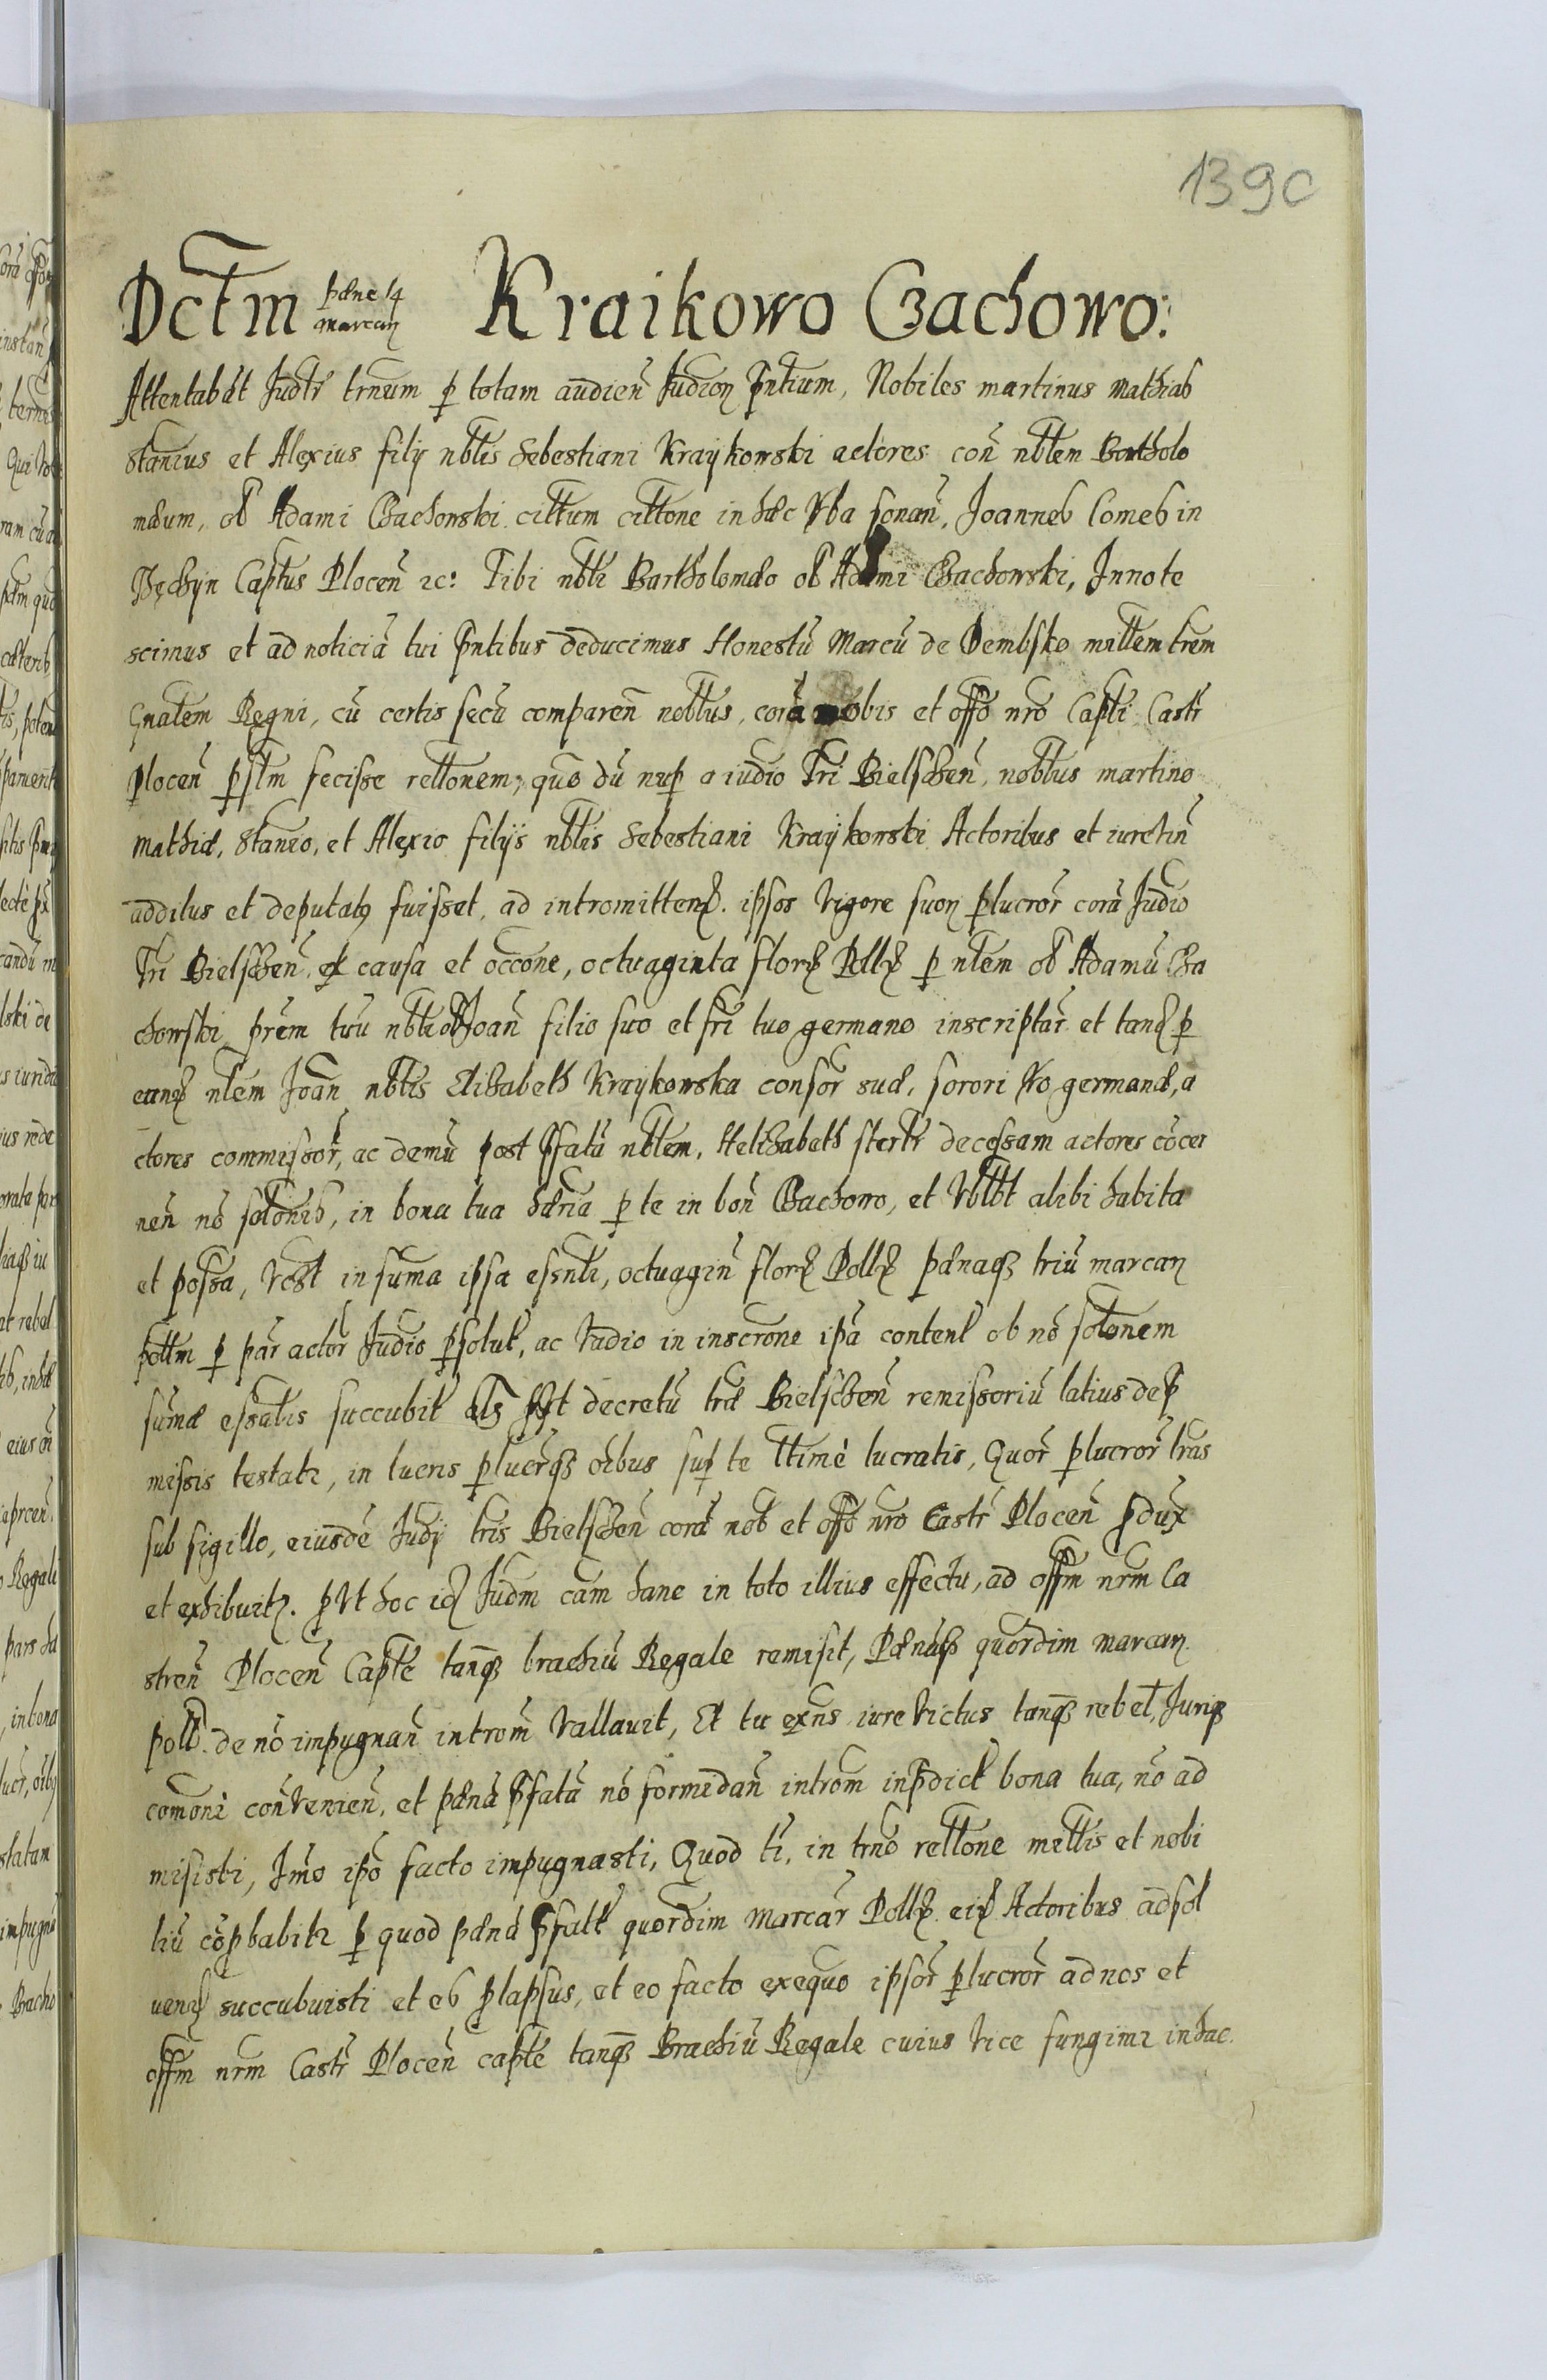 1390
Dctm pænæ 14 marcaꝝ Kraikowo Czachowo:
Attentabāt Judtr trnum ꝑ totam audien̄ Judioꝝ Pn̄tium, Nobiles martinus Mathias
Stanius et Alexius filÿ nbłis Sebestiani Kraÿkowski actores con̄ nbłem Bartholo
mæum, oł Adami Czachowski. cittum cittone in hæc Vba sonan̄, Joannes Comes in
Thęchÿn Captus Plocen̄ ꝛc: Tibi nbłi Bartholomæo oł Adami Czachowski, Innote
scimus et ad noticiā tui Pn̄tibus deducimus Honestū Marcū de Dembsko mittem trem
Gnałem Regni, cū certis secū comparen̄ nobłbus, corā nobis et offo nr̄o Capłi Castr̄
Plocen̄ ꝑsłm fecisse rełłonem, quo dū nuꝑ a iudio Tri Bielscen̄, nobłbus martino
Mathiæ, Stanio, et Alexio filÿs nbłis Sebestiani Kraÿkowski Actoribus et iuretin̄
additus et deputatꝰ fuisset, ad intromitten̄. ipsos Vigore suoꝝ ꝑlucror̄ corā Judio
Tri Bielscen̄, ex causa et occōne, octuaginta flor̄ Połł ꝑ nłem oł Adamū Cza
chowski, prēm tuū nbłi oł Joan̄ filio suo et fri tuo germano inscriptar̄ et tand ꝑ
eund nłem Joan̄ nbłis Elizabeth Kraÿkowska consor̄ suæ, sorori Vo germanæ, a
ctores commissor̄, ac demū post Pfatā nbłem, Helizabeth ster̄tr decessam actores cōcer
nen̄ nō sołonis, in bona tua hær̄ia ꝑ te in bon̄ Czachowo, et Vbłbt alibi habita
et possa, Vczt in suma ipsa essntłi, octuagin̄ flor̄ Połł pænaqꝫ triū marcaꝝ
połłm ꝑ par̄ actor̄ Judio ꝑsolut̄, ac Vadio in inscrōne ipā content̄ ob nō sołonem
sumæ essałis succubit̄ ałs Put decretū træ Bielscen̄ remissoriū latius de P
missis testatr, in lucris ꝑlucrisqꝫ oībus suꝑ te łtime lucratis, Quor̄ ꝑlucror̄ tras
sub sigillo, eiusdē Judÿ tris Bielscen̄ corā nob et offo nr̄o Castr̄ Plocen̄ Pdux
et exhibuitꝭ. PVt hoc id Judm cām hanc in toto illius effectu, ad offm nrm Ca
stren̄ Plocen̄ Capłe tanqꝫ brachiū Regale remisit, Pænāqꝫ quordim marcaꝝ
połł. de nō impugnan̄ introm̄ Vallauit, Et tu exn̄s iure Victus tanqꝫ rebeł, Juriqꝫ
comoni conVenien̄, et pænā Pfatā nō formidan̄ introm̄ in Pdict̄ bona tua, nō ad
misisti, Imo ipo facto impugnasti, Quod ti, in trno rełłone mełłis et nobi
liū cōꝓbabitr ꝑ quod pænā Pfatā quordim Marcar̄ Połł eisd Actoribus adsol
uend succubuisti et eō Plapsus, et eo facto exequo ipsor̄ ꝑlucror̄ ad nos et
offm nrm Castr̄ Plocen̄ capłe tanqꝫ Brachiū Regale cuius Vice fungimr in hac